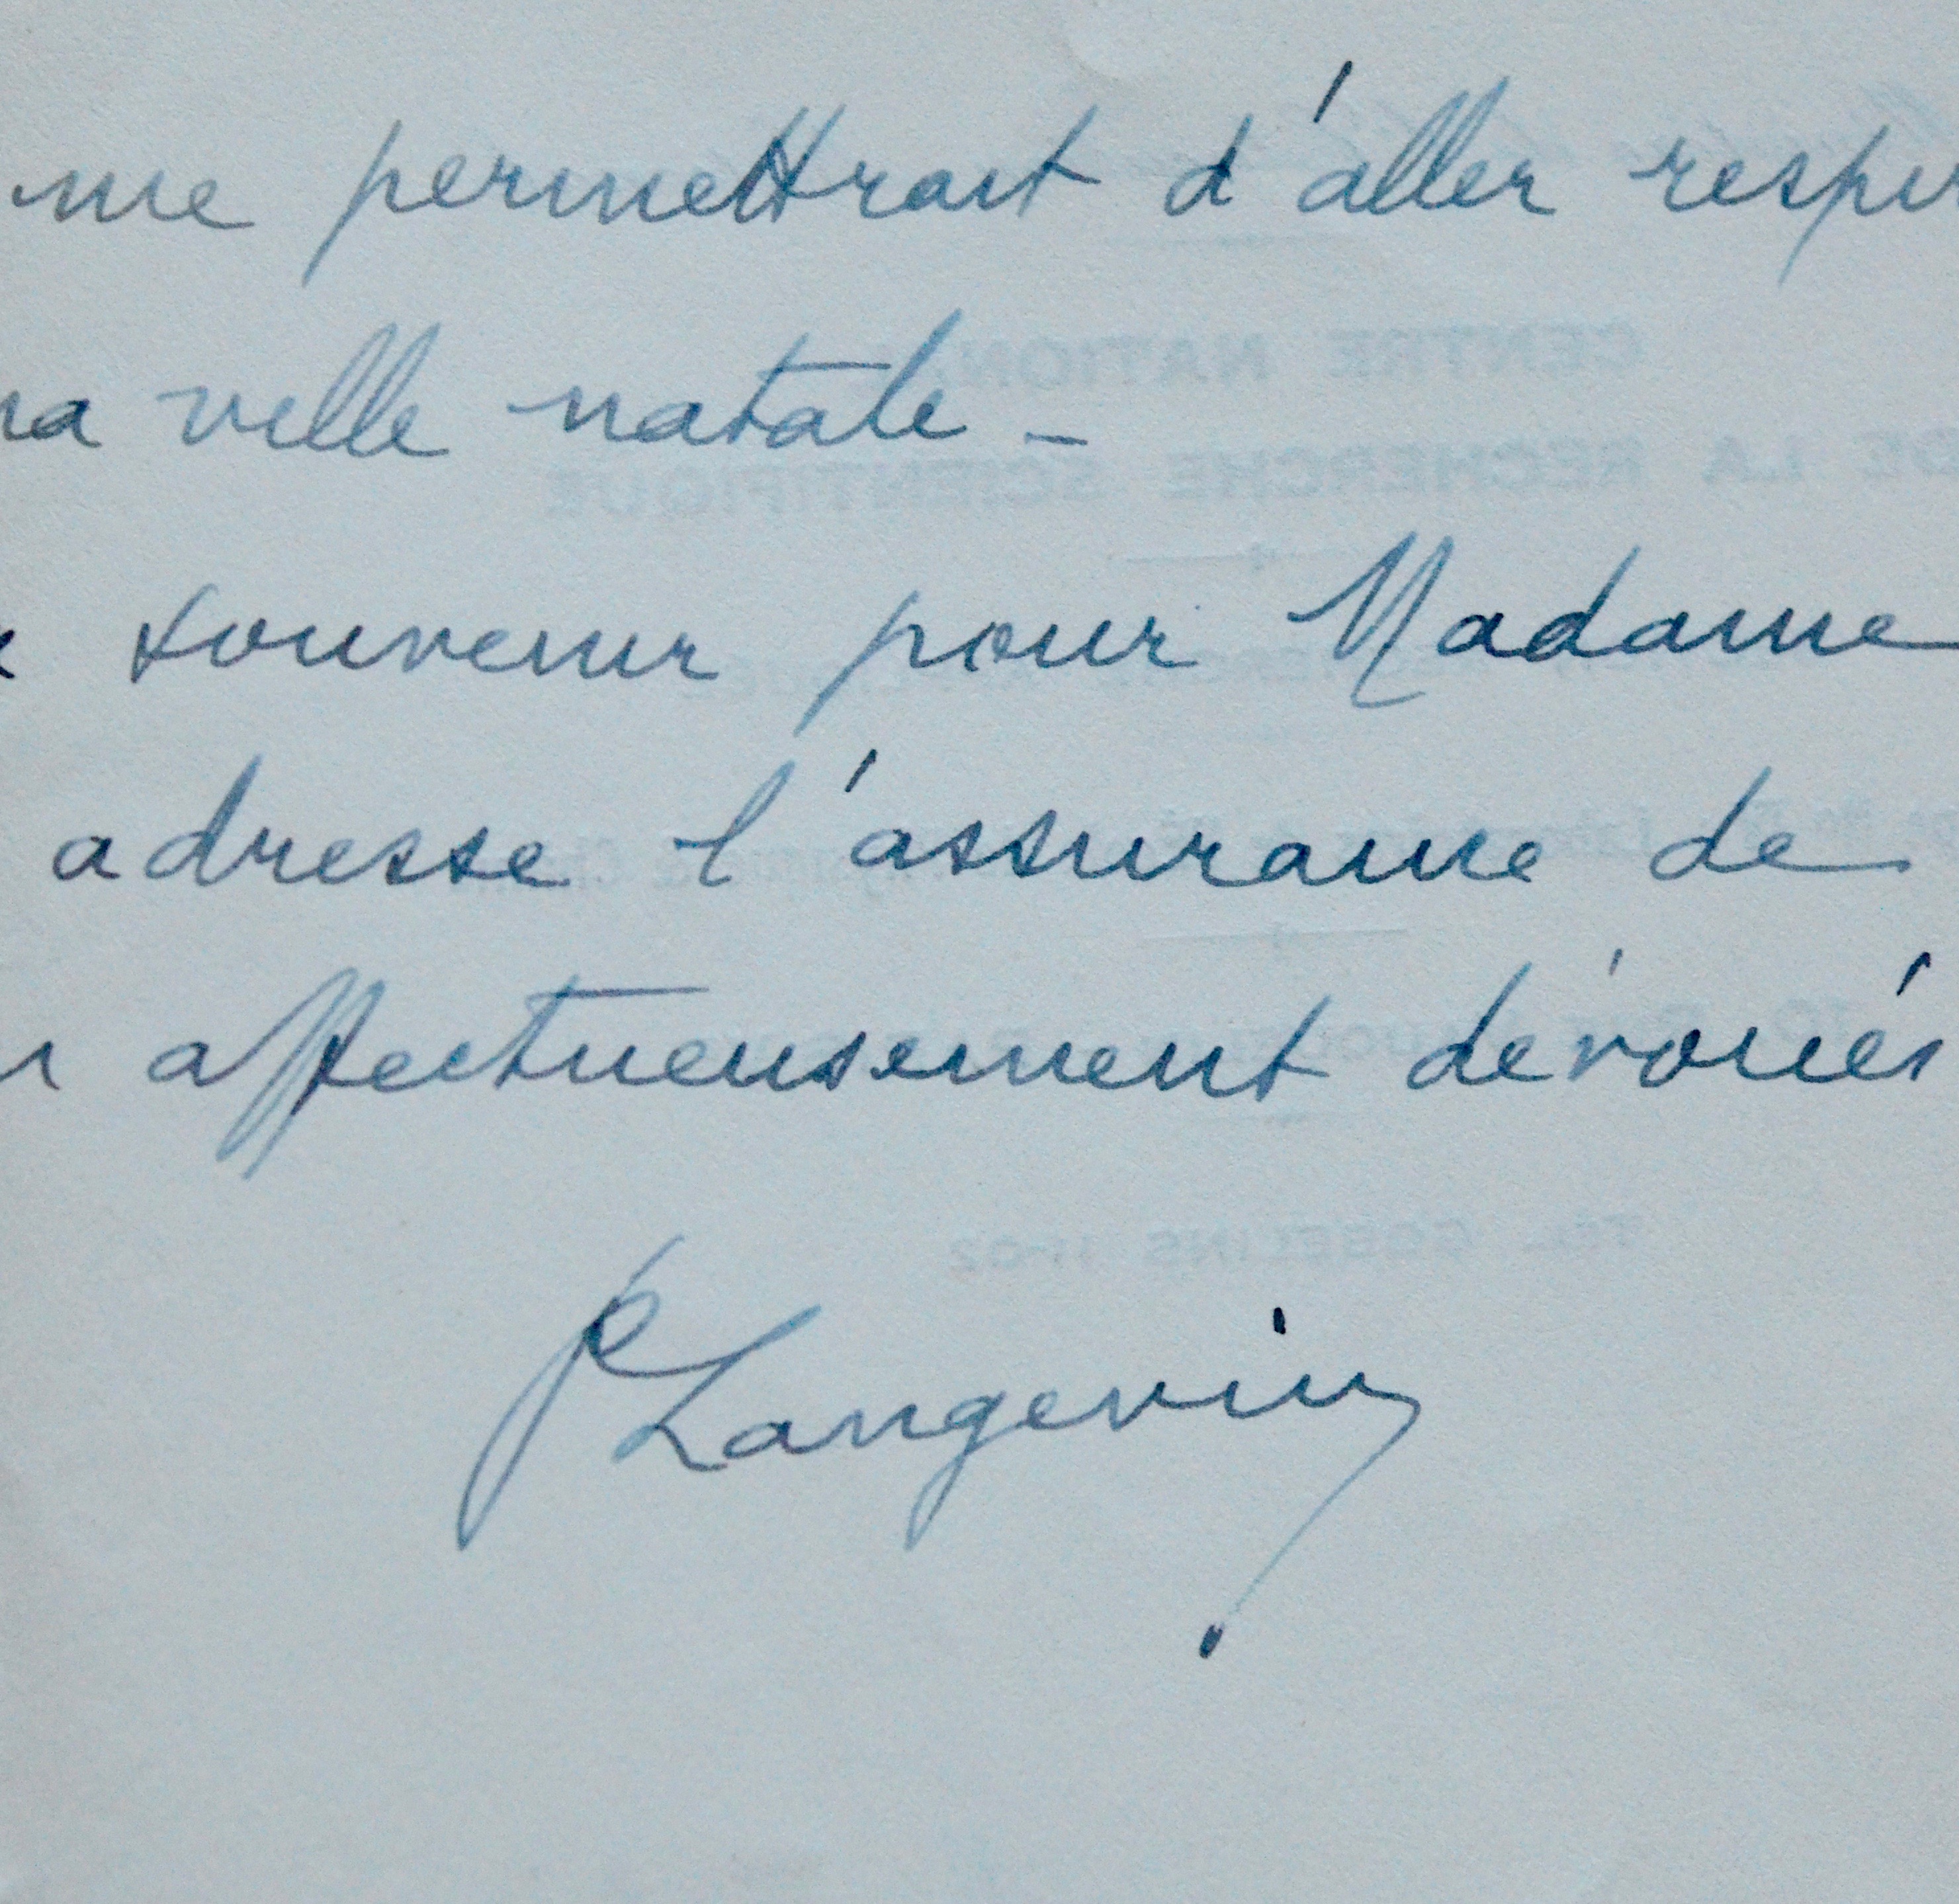 me permettrait d'aller respir
ma ville natale -
souvenir pour Madame
adresse l'assurance de
affectueusement dévoués
P Langevin
CENTRE NATIONAL
DE LA RECHERCHE SCIENTIFIQUE
TÉL. GOBELINS